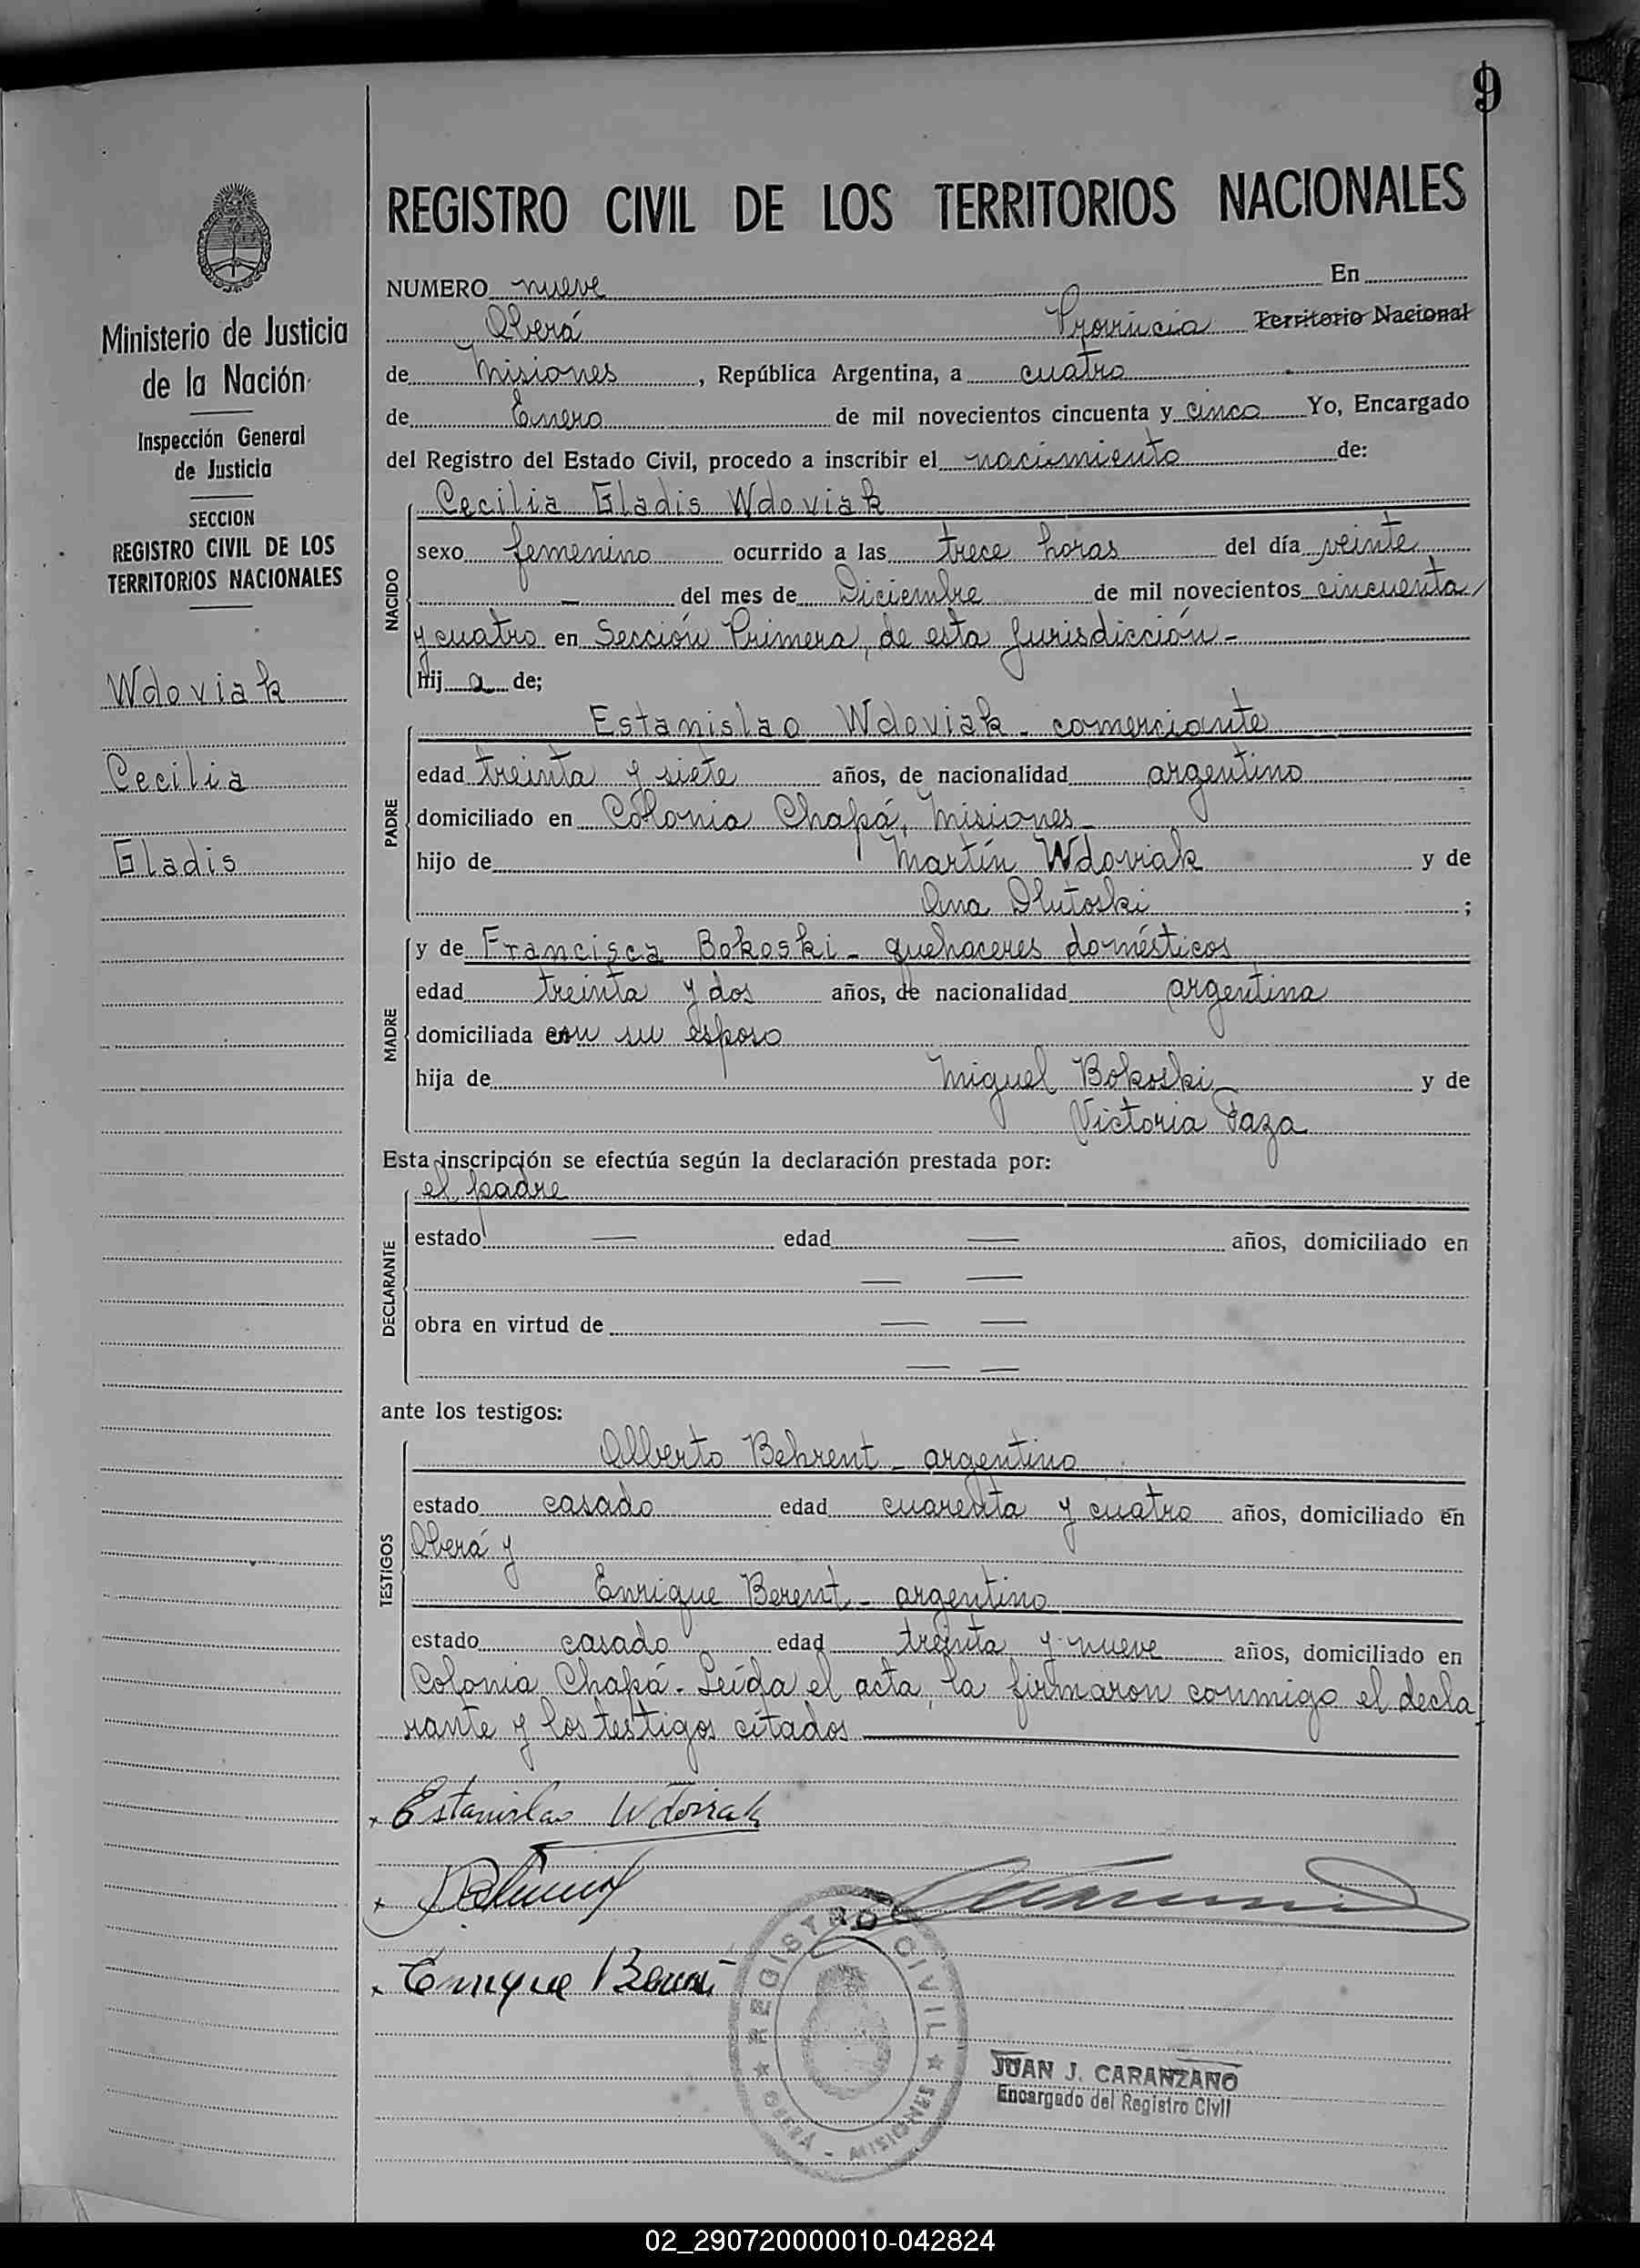 9
REGISTRO CIVIL DE LOS TERRITORIOS NACIONALES
Ministerio de Justicia
de la Nación
Inspección General
de Justicia
SECCION
REGISTRO CIVIL DE LOS
TERRITORIOS NACIONALES
Wdoviak
Cecilia
Gladis
NUMERO nueve En
Oberá Provincia Territorio Nacional
de Misiones, República Argentina, a cuatro
de Enero de mil novecientos cincuenta y cinco Yo, Encargado
del Registro del Estado Civil, procedo a inscribir el nacimiento de:
NACIDO
Cecilia Gladis Wdoviak
sexo femenino ocurrido a las trece horas del día veinte
— del mes de Diciembre de mil novecientos cincuenta
y cuatro en Sección Primera, de esta Jurisdicción -
hij a de;
PADRE
Estanislao Wdoviak - comerciante
edad treinta y siete años, de nacionalidad argentino
domiciliado en Colonia Chapá, Misiones -
hijo de Martín Wdoviak y de
Ana Dlutoski ;
MADRE
y de Francisca Bokoski - quehaceres domésticos
edad treinta y dos años, de nacionalidad argentina
domiciliada con su esposo
hija de Miguel Bokoski y de
Victoria Paza
Esta inscripción se efectúa según la declaración prestada por:
DECLARANTE
el padre
estado — edad — años, domiciliado en
— —
obra en virtud de — —
— —
ante los testigos:
TESTIGOS
Alberto Behrent - argentino
estado casado edad cuarenta y cuatro años, domiciliado en
Oberá y
Enrique Berent - argentino
estado casado edad treinta y nueve años, domiciliado en
Colonia Chapá - Leída el acta, la firmaron conmigo el decla
rante y los testigos citados
Estanislao Wdoviak
Enrique Berent
REGISTRO CIVIL
OBERÁ - MISIONES
JUAN J. CARANZANO
Encargado del Registro Civil
02_290720000010-042824